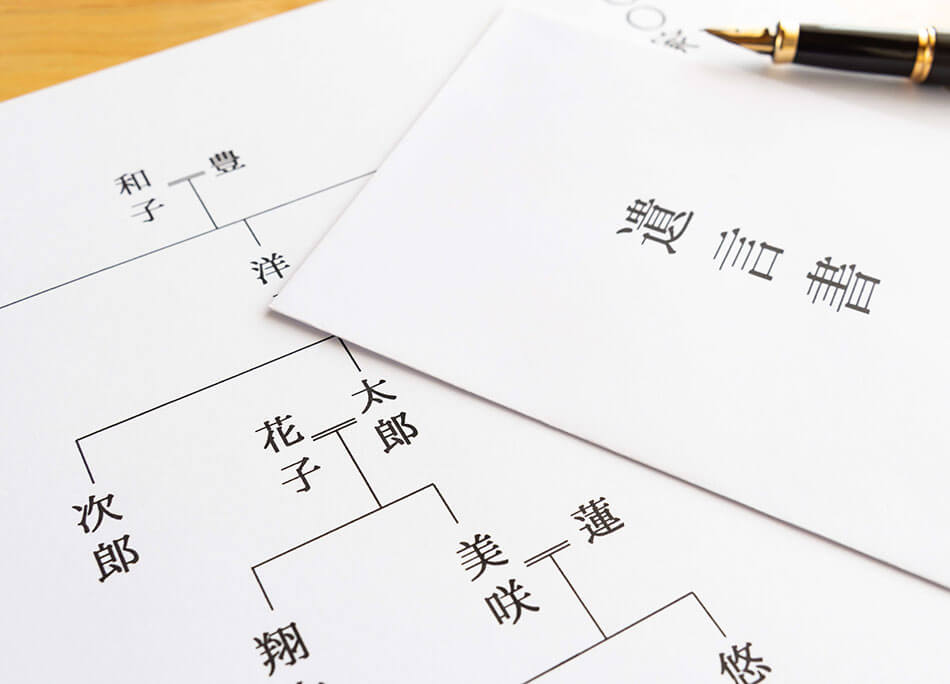 遺言書
豊
和子
洋
太郎
花子
次郎
蓮
美咲
翔
悠